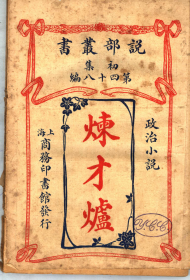 說部叢書
初集
第四十八編
政治小說
煉才爐
上海
商務印書館發行